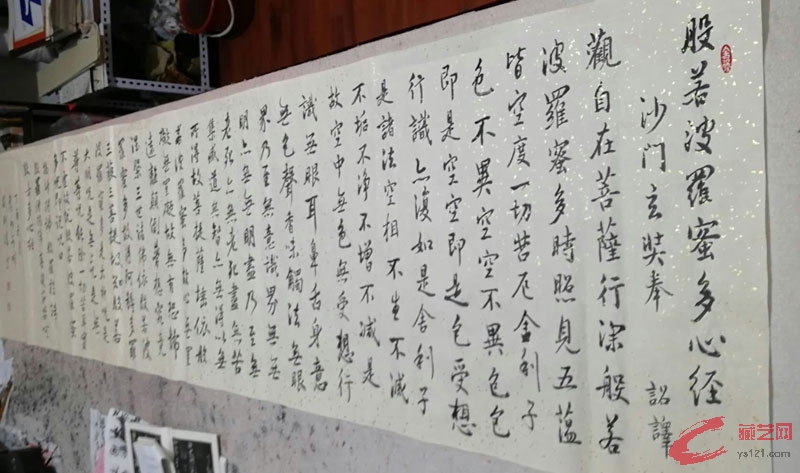 般若波羅蜜多心经
沙門玄奘奉 詔譯
觀自在菩薩行深般若
波羅蜜多時照見五蘊
皆空度一切苦厄舍利子
色不異空空不異色色
即是空空即是色受想
行識亦復如是舍利子
是諸法空相不生不滅
不垢不净不增不减是
故空中無色無受想行
識無眼耳鼻舌身意
無色聲香味觸法無眼
界乃至無意識界無無
明亦無無明盡乃至無
老死亦無老死盡無苦
集滅道無智亦無得以無
所得故菩提薩埵依般
若波羅蜜多故心無罣
礙無罣礙故無有恐怖
遠離顛倒夢想究竟
涅槃三世諸佛依般若波
羅蜜多故得阿耨多羅
三藐三菩提故知般若
波羅蜜多是大神咒是
大明咒是無上咒是無
等等咒能除一切苦真實
不虛故說般若波羅蜜
多咒即說咒曰
藏艺网
ys121.com